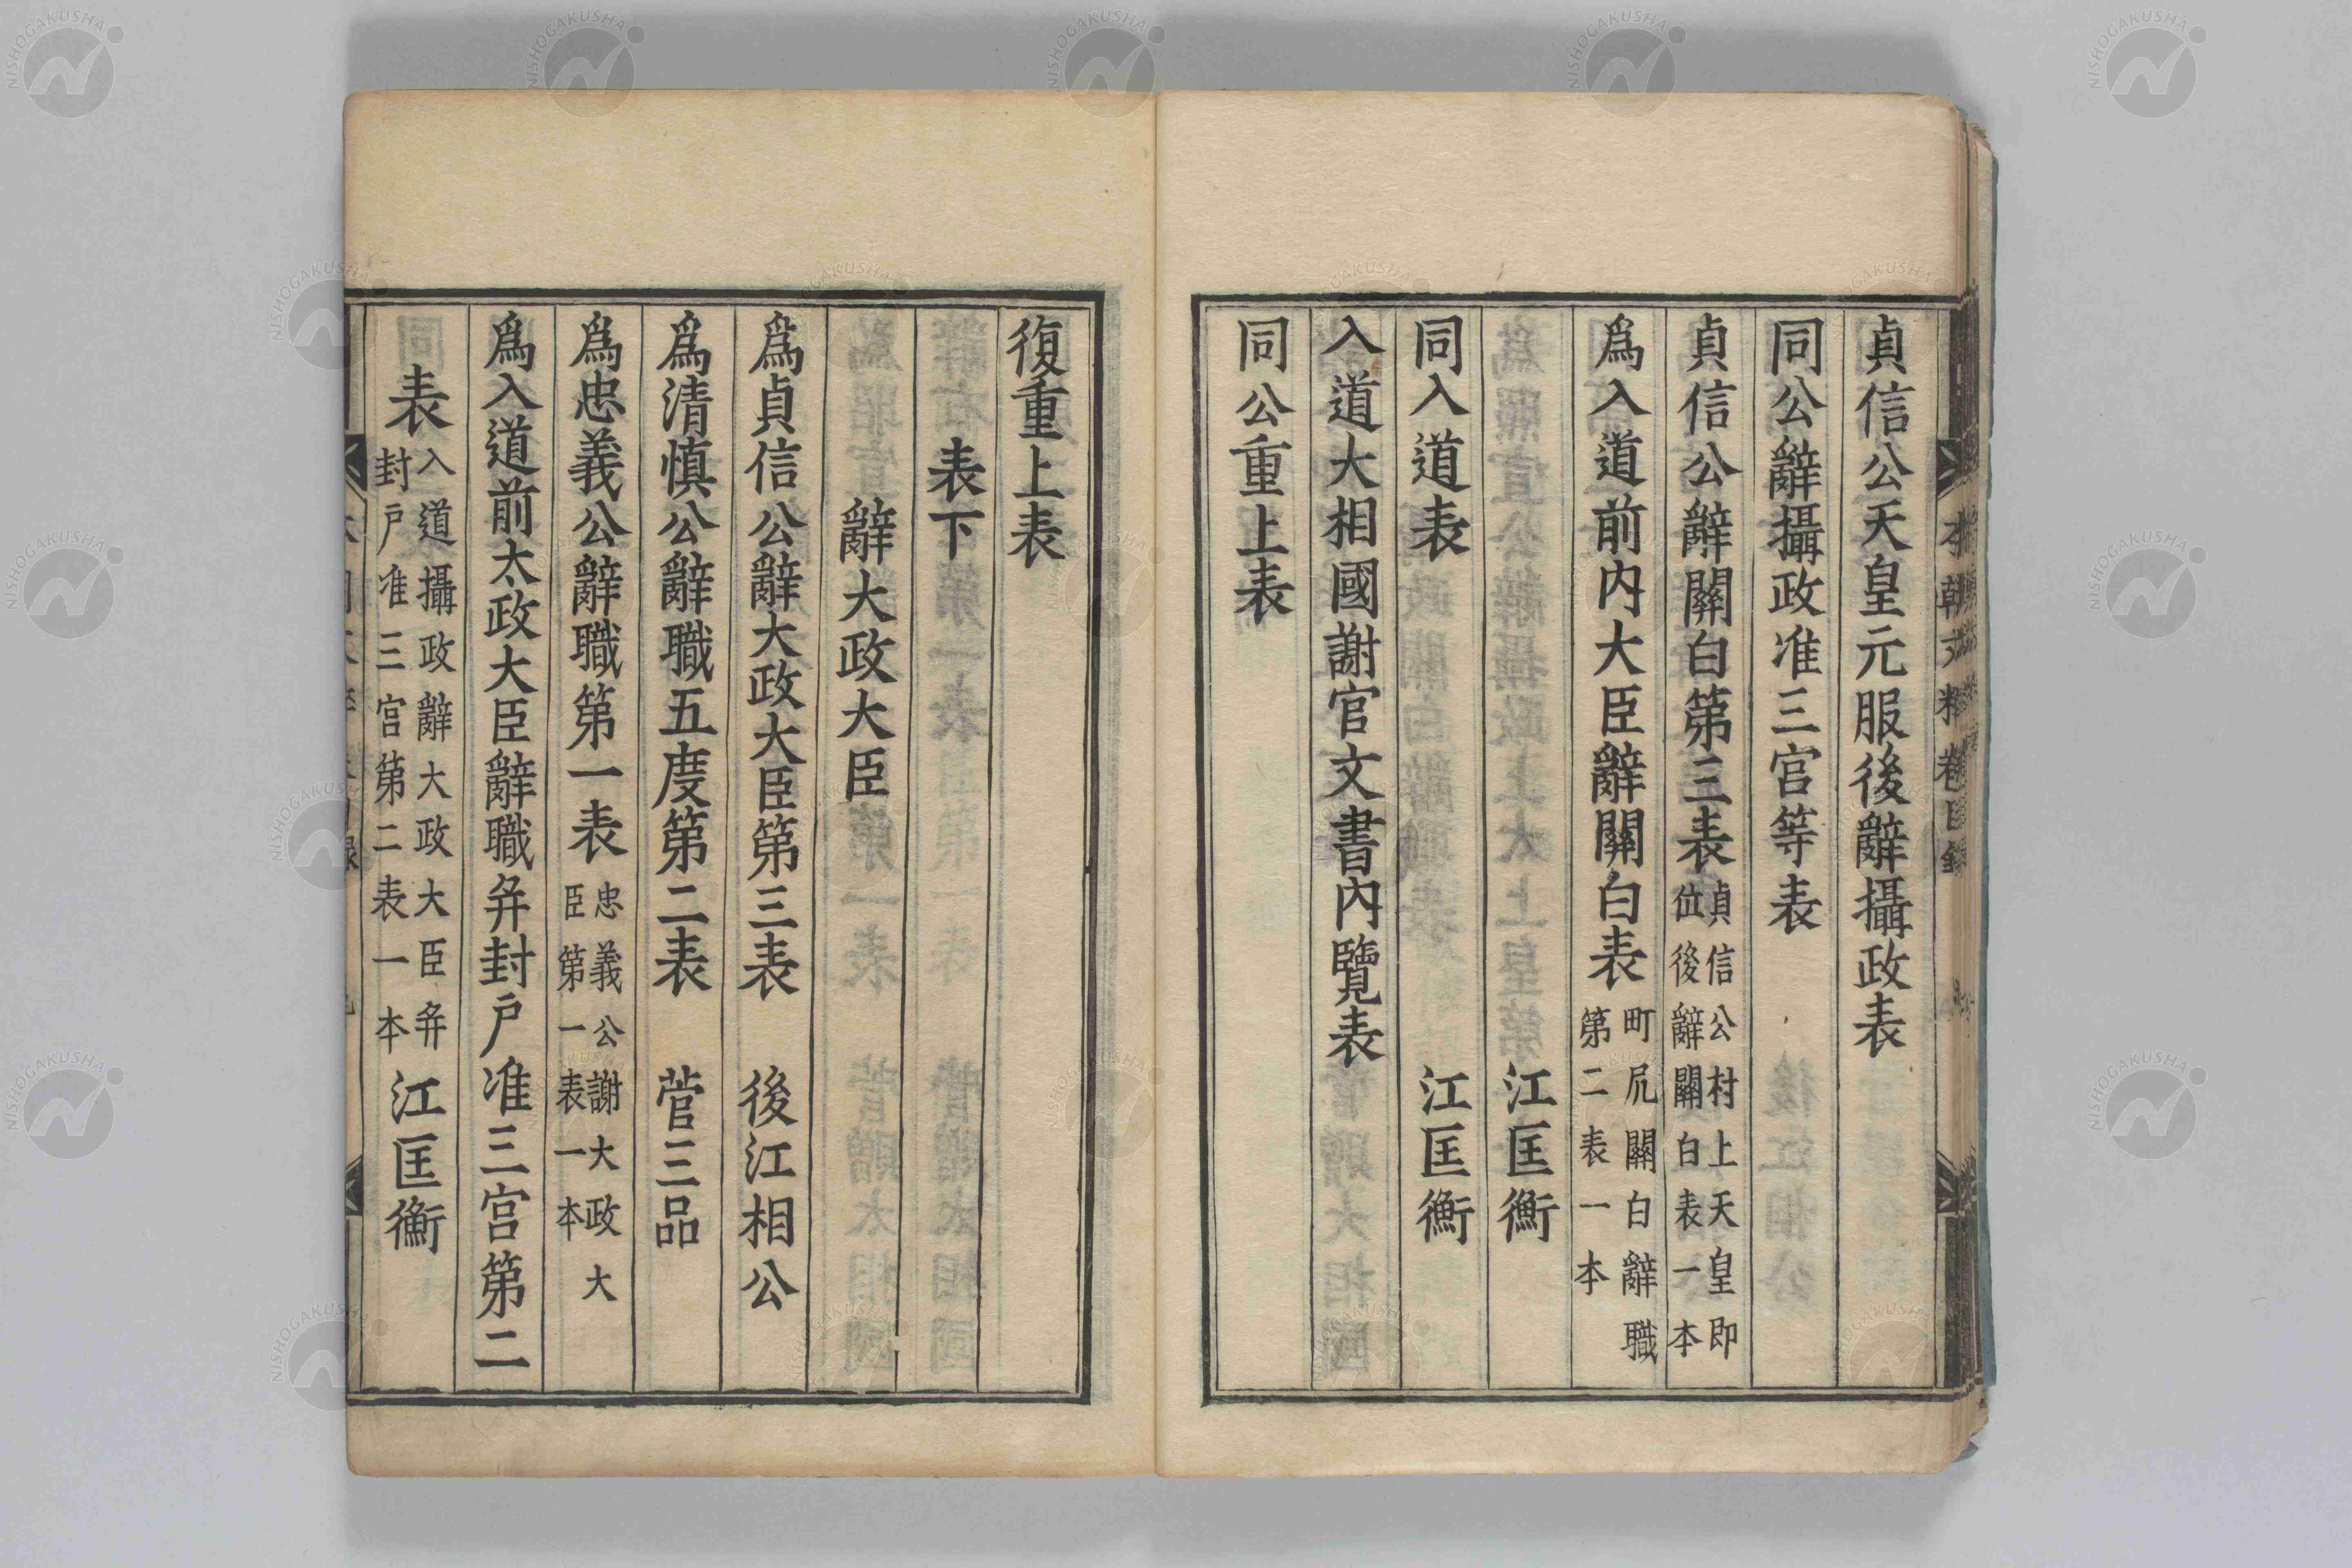 貞信公天皇元服後辭攝政表
同公辭攝政准三宮等表
貞信公辭關白第三表 貞信公村上天皇即
位後辭關白表一本
爲入道前內大臣辭關白表 町尻關白辭職
第二表一本
江匡衡
同入道表 江匡衡
入道大相國謝官文書內覽表
同公重上表
復重上表
表下
辭大政大臣
爲貞信公辭大政大臣第三表 後江相公
爲清慎公辭職五度第二表 菅三品
爲忠義公辭職第一表 忠義公謝大政大
臣第一表一本
爲入道前太政大臣辭職并封戶准三宮第二
表 入道攝政辭大政大臣并
封戶准三宮第二表一本 江匡衡
本朝文粹卷目錄
NISHOGAKUSHA